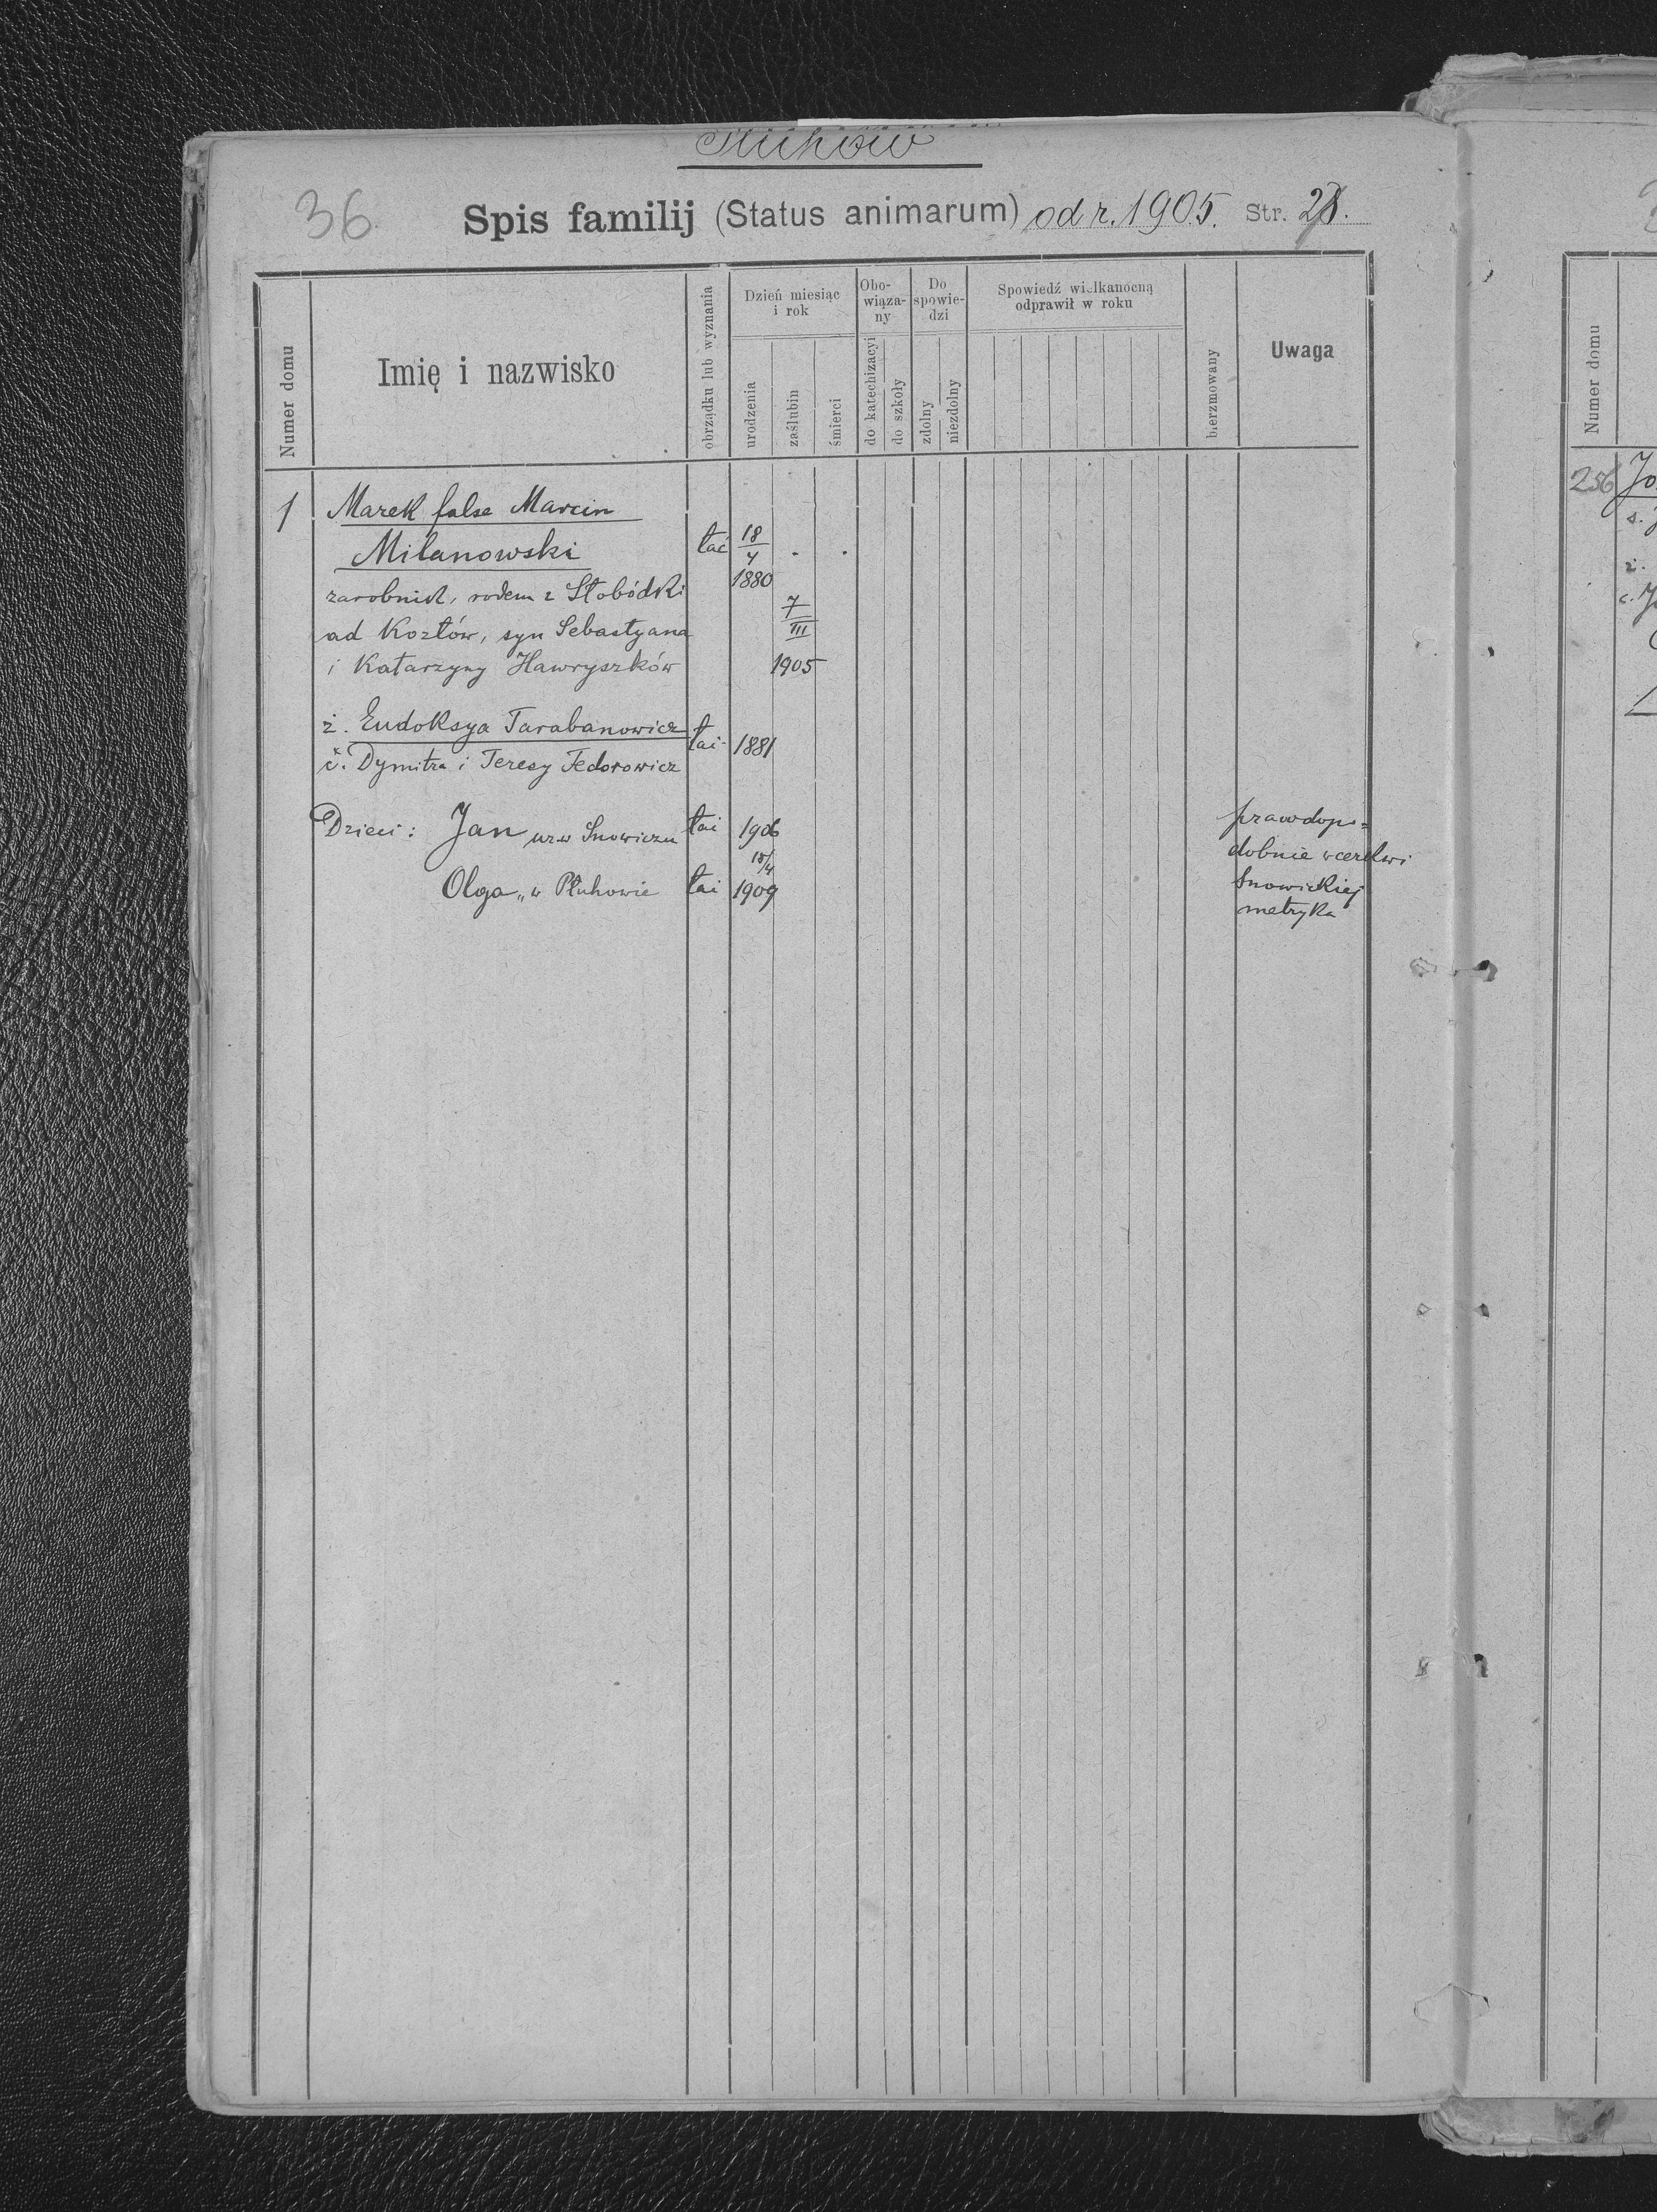 Płuhów
36.
Spis familij (Status animarum) od r. 1905. Str. 28.
Numer domu
Imię i nazwisko
obrządku lub wyznania
Dzień miesiąc
i rok
urodzenia
zaślubin
śmierci
Obo-
wiąza-
ny
do katechizacyi
do szkoły
Do
spowie-
dzi
zdolny
niezdolny
Spowiedź wielkanocną
odprawił w roku
bierzmowany
Uwaga
1 Marek false Marcin
Milanowski łać 18/4
zarobnik, rodem z Słobódki 1880
ad Kozłów, syn Sebastyana 7/III
i Katarzyny Hawryszków 1905
ż. Eudoksya Tarabanowicz
č. Dymitra i Teresy Fedorowicz łai 1881
Dzieci: Jan ur. w Snowiczu łai 1906
Olga „ w Płuhowie łai 18/4 1909
prawdopo=
dobnie w cerkwi
Snowickiej
metryka
Numer domu
256 Jo
s. J
ż.
c. J